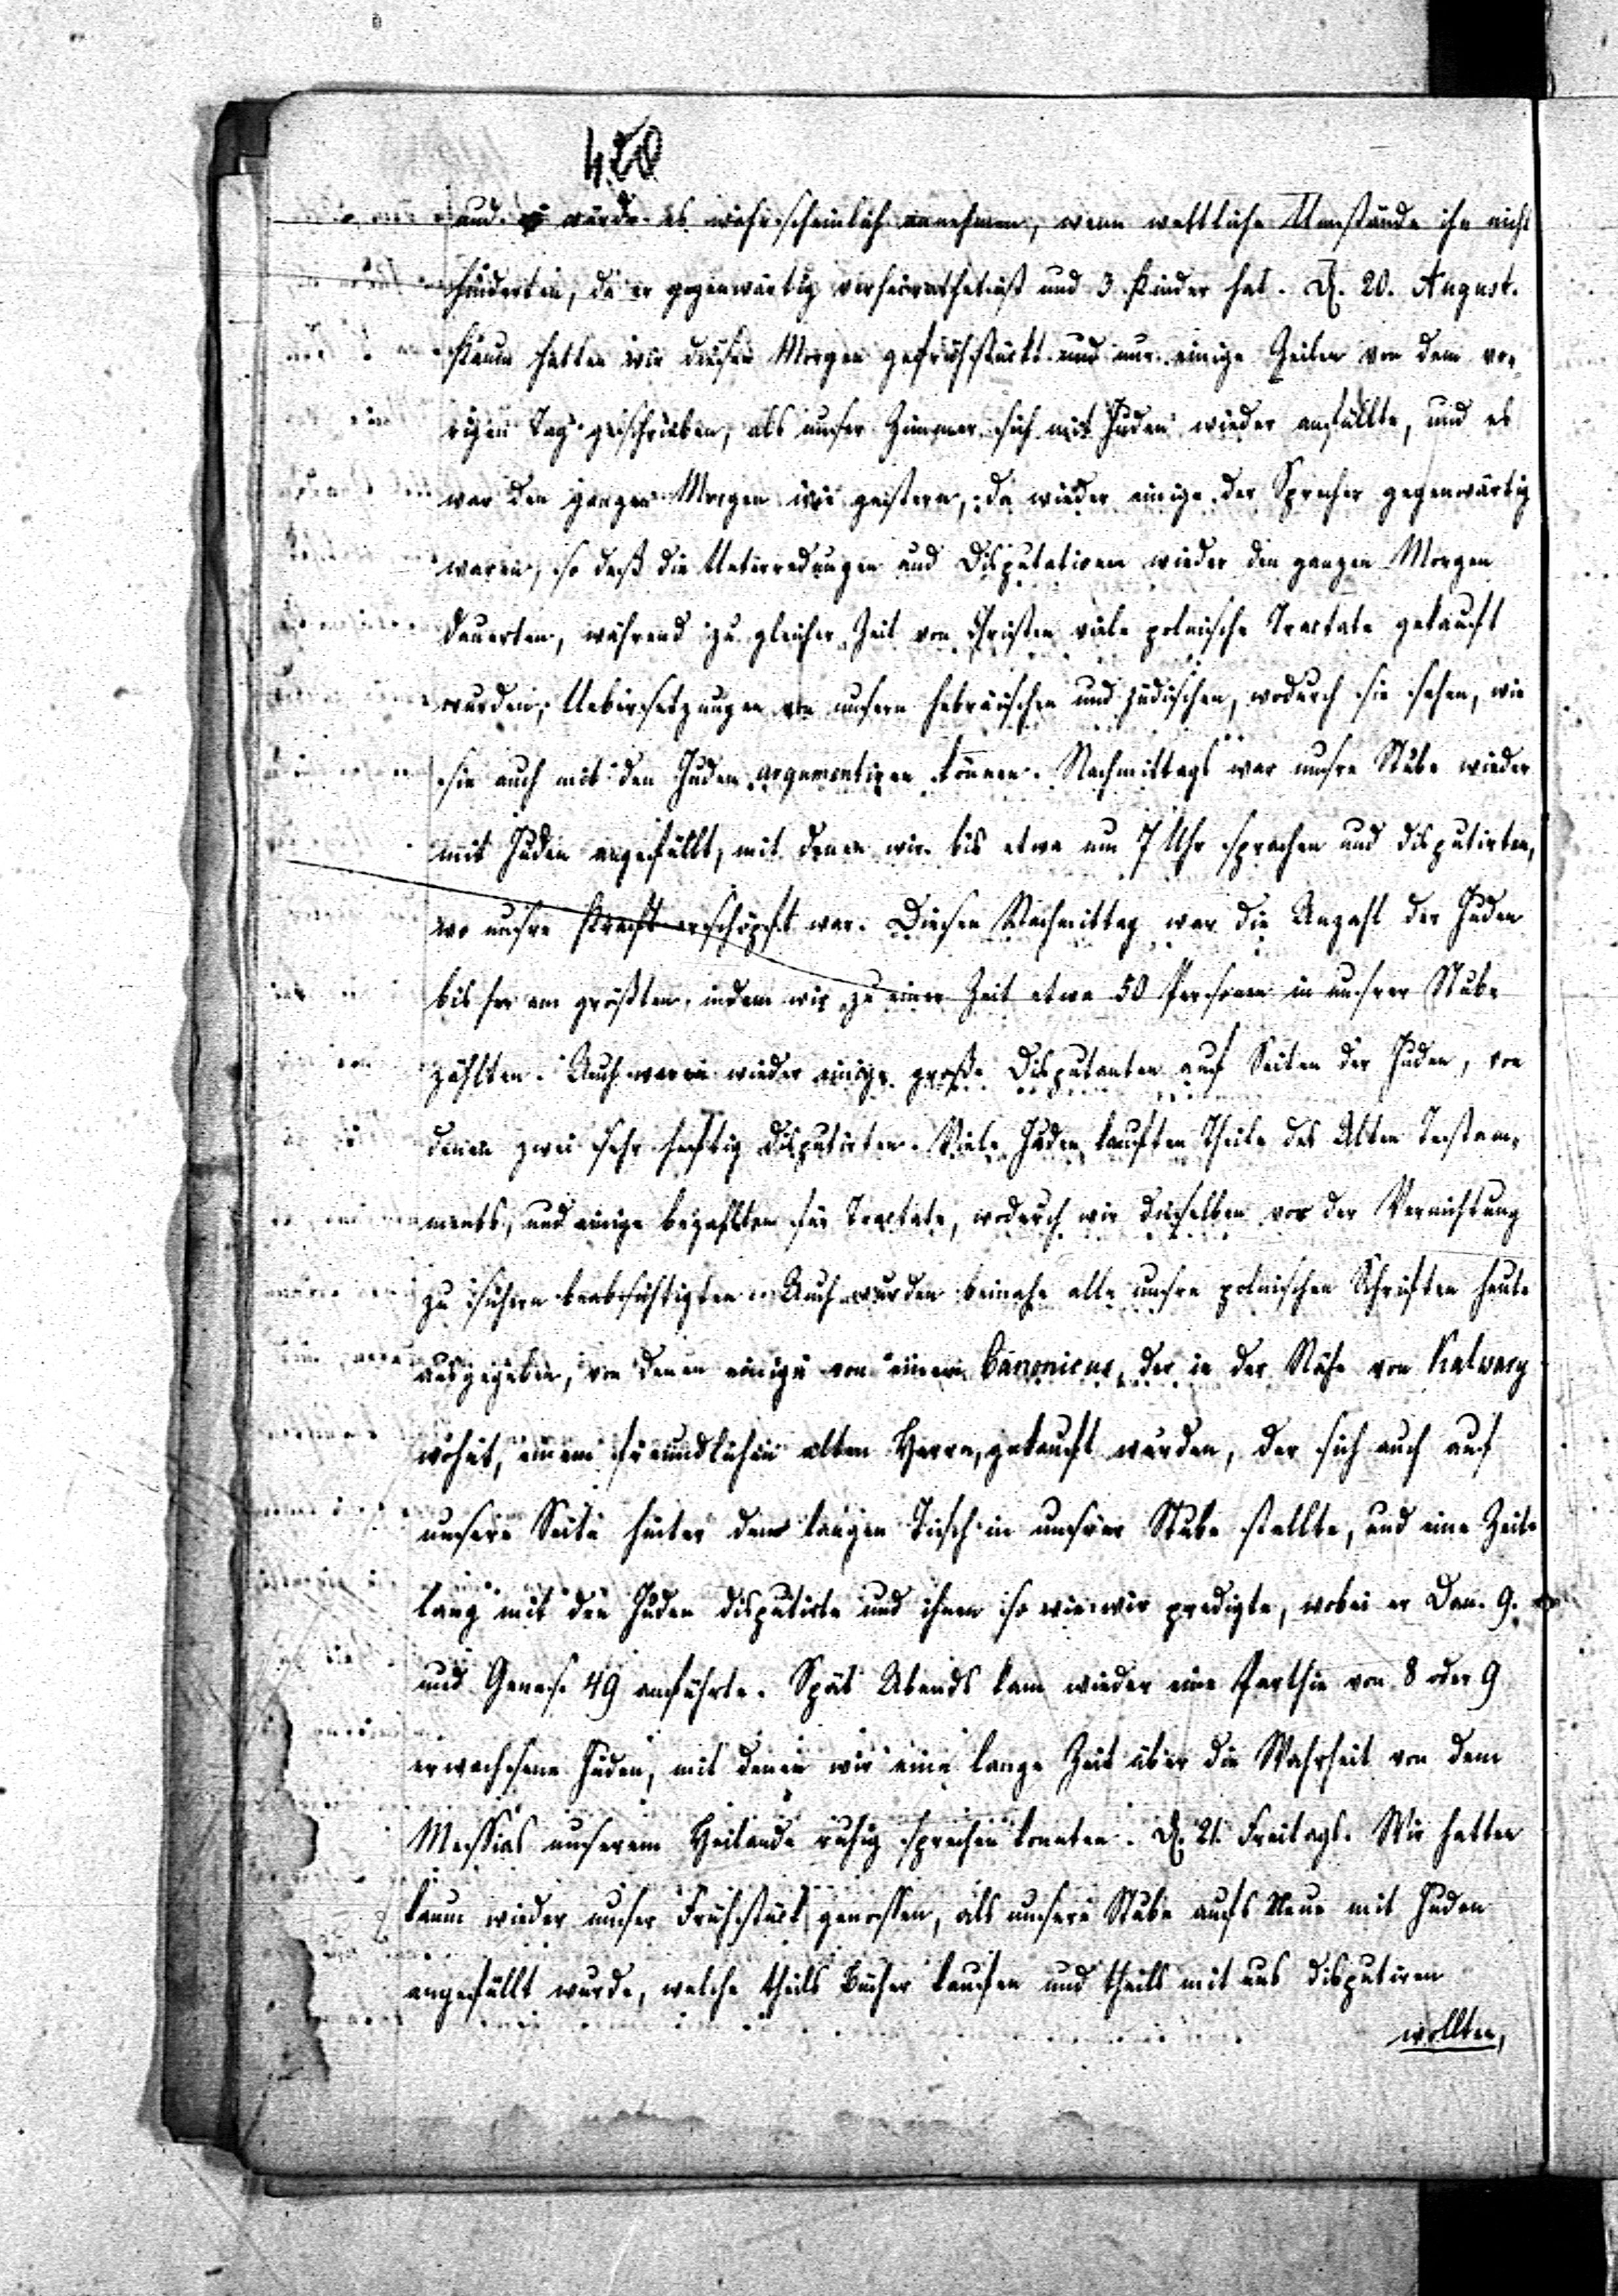 450
und würde es wahrscheinlich annehmen, wenn weltliche Umstände ihn nicht
hinderten, da er gegenwärtig verheirathet ist und 3 Kinder hat. D. 20. August.
Kaum hatten wir diesen Morgen gefrühstückt und nur einige Zeilen von dem vo-
rigen Tag geschrieben, als unser Zimmer sich mit Juden wieder anfüllte, und es
war den ganzen Morgen wie gestern, da wieder einige der Sprecher gegenwärtig
waren, so daß die Unterredungen und Disputationen wieder den ganzen Morgen
dauerten, während zu gleicher Zeit von Christen viele polnische Tractate gekauft
wurden, Uebersetzungen von unsern hebräischen und jüdischen, wodurch sie sehen, wie
sie auch mit den Juden argumentiren können. Nachmittags war unsre Stube wieder
mit Juden angefüllt, mit denen wir bis etwa um 7 Uhr sprachen und disputirten,
wo unsre Kraft erschöpft war. Diesen Nachmittag war die Anzahl der Juden
bisher am größten, indem wir zu einer Zeit etwa 50 Personen in unsrer Stube
zählten. Auch waren wieder einige große Disputanten auf Seiten der Juden, von
denen zwei sehr heftig disputirten. Viele Juden kauften Theile des Alten Testam-
ments, und einige bezahlten für Tractate, wodurch wir dieselben vor der Vernichtung
zu sichern beabsichtigten. Auch wurden beinahe alle unsre polnischen Schriften heute
ausgegeben, von denen einige von einem Canonicus, der in der Nähe von Kalwary
wohnt, einem freundlichen alten Herrn, gekauft wurden, der sich auch auf
unsere Seite hinter dem langen Tisch in unsrer Stube stellte, und eine Zeit
lang mit den Juden disputirte und ihnen so wie wir predigte, wobei er Dan. 9.
und Genes. 49 anführte. Spät Abends kam wieder eine Parthie von 8 oder 9
erwachsene Juden, mit denen wir eine lange Zeit über die Wahrheit von dem
Messias unserem Heilande ruhig sprechen konnten. D. 21. Freitags. Wir hatten
kaum wieder unser Frühstück genossen, als unsere Stube aufs Neue mit Juden
angefüllt wurde, welche theils Bücher kaufen und theils mit uns disputiren
wollten,